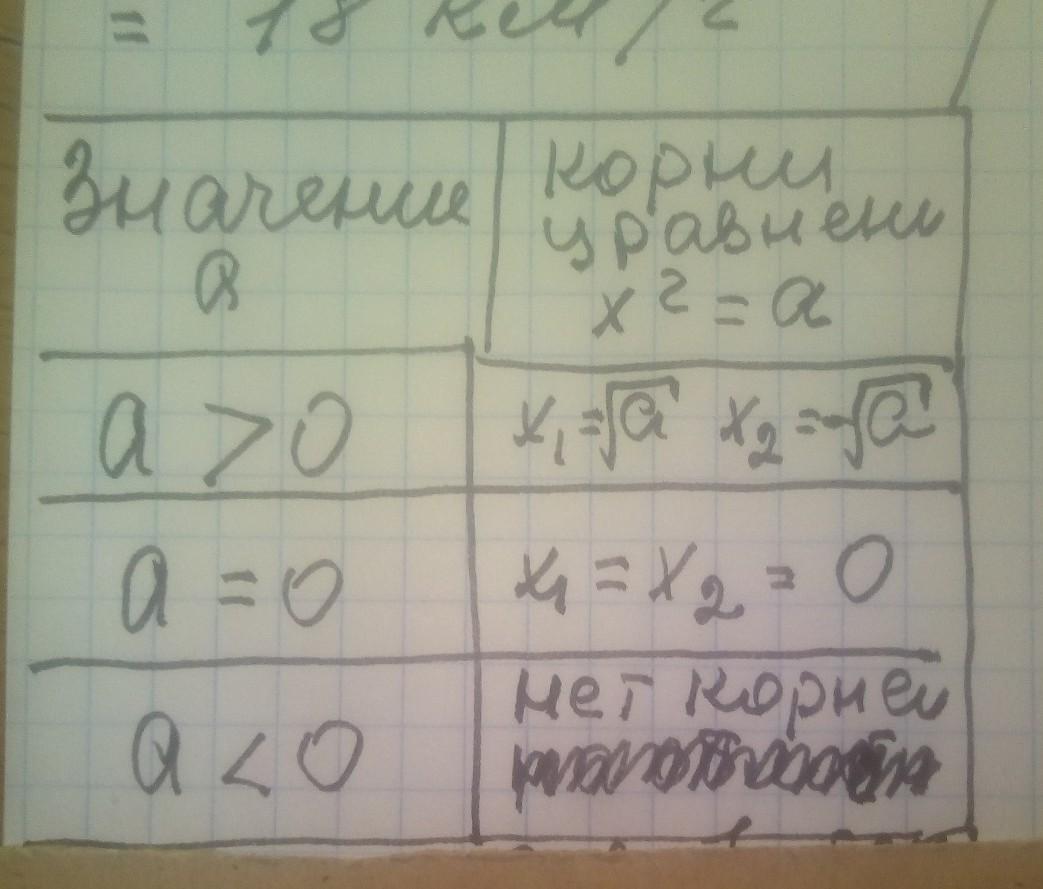 = 18 км/г
Значение
а
корни
уравнени
x² = a
a > 0
x₁=√a x₂=-√a
a = 0
x₁ = x₂ = 0
a < 0
нет корней